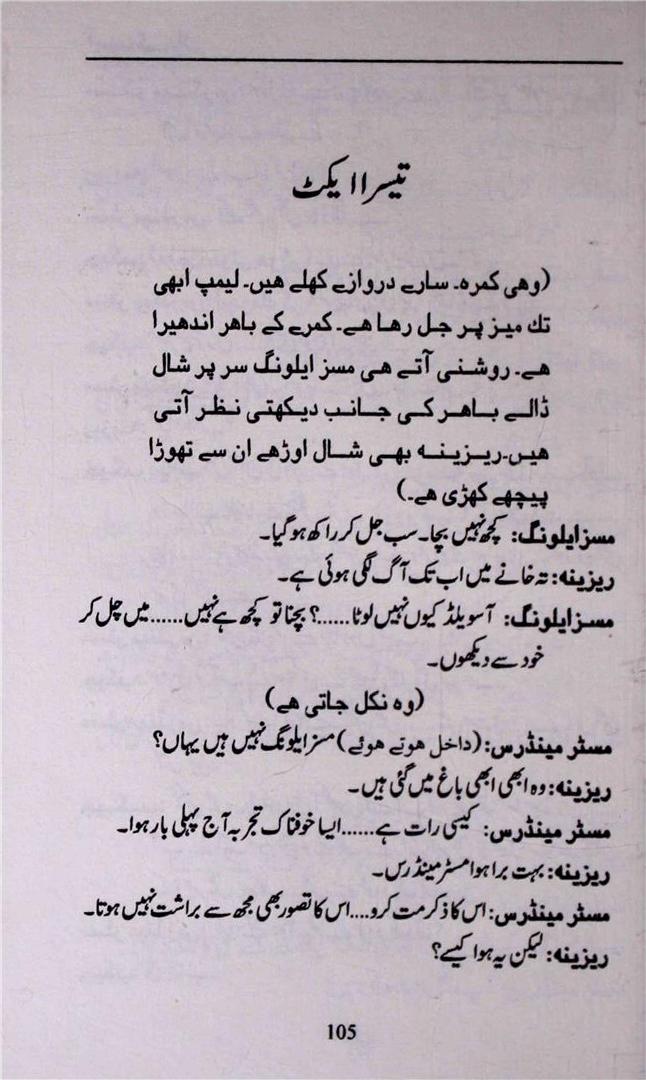 تیسرا ایکٹ
(وهی کمره۔ سارے دروازے کھلے هیں۔ لیمپ ابھی
تك میز پر جل رها هے۔ کمرے کے باهر اندھیرا
هے۔ روشنی آتے هی مسز ایلونگ سر پر شال
ڈالے باهر کی جانب دیکھتی نظر آتی
هیں۔ریزینه بھی شال اوڑھے ان سے تھوڑا
پیچھے کھڑی هے۔)
مسز ایلونگ: کچھ نہیں بچا۔ سب جل کر راکھ ہو گیا۔
ریزینه: تہ خانے میں اب تک آگ لگی ہوئی ہے۔
مسز ایلونگ: آسویلڈ کیوں نہیں لوٹا......؟ بچنا تو کچھ ہے نہیں......میں چل کر
خود سے دیکھوں۔
(وه نکل جاتی هے)
مسٹر مینڈرس: (داخل هوتے هوئے) مسز ایلونگ نہیں ہیں یہاں؟
ریزینه: وہ ابھی ابھی باغ میں گئی ہیں۔
مسٹر مینڈرس: کیسی رات ہے......ایسا خوفناک تجربہ آج پہلی بار ہوا۔
ریزینه: بہت برا ہوا مسٹر مینڈرس۔
مسٹر مینڈرس: اس کا ذکر مت کرو....اس کا تصور بھی مجھ سے براشت نہیں ہوتا۔
ریزینه: لیکن یہ ہوا کیسے؟
105